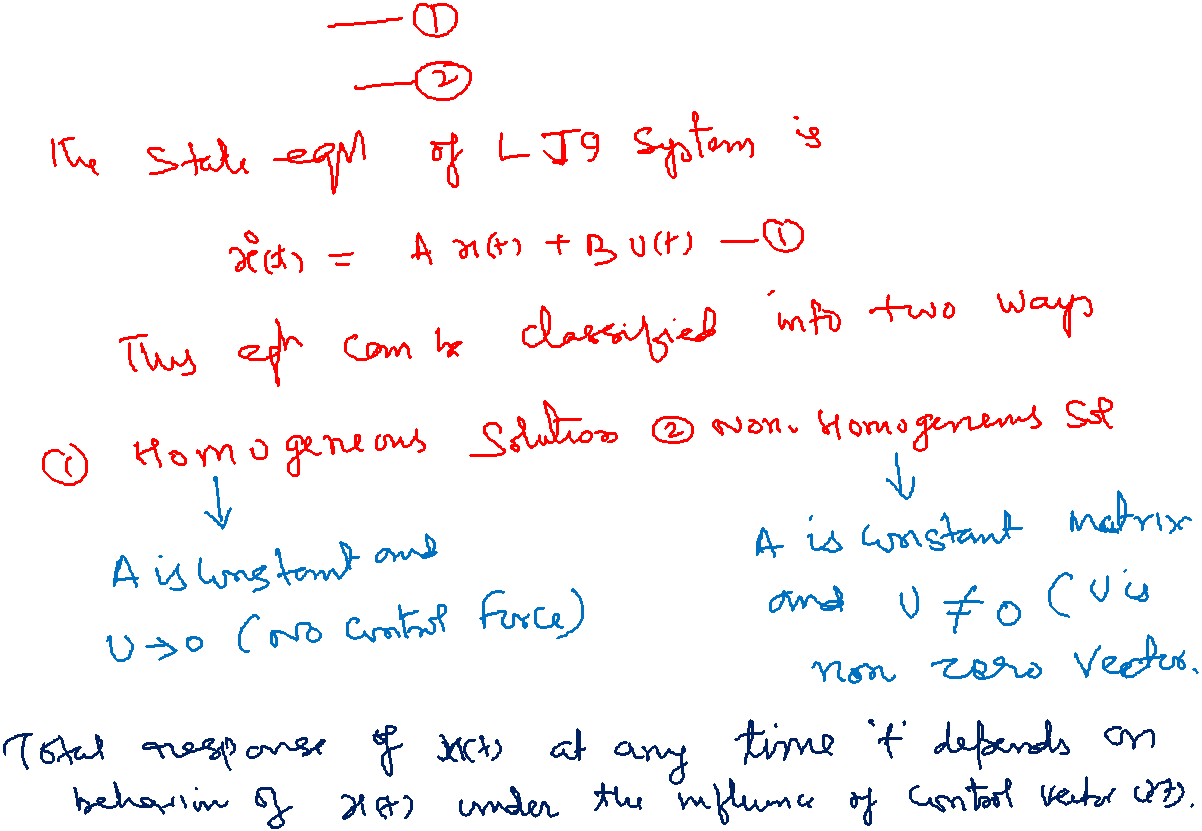 — ①
— ②
The State eqn of LTI System is
ẋ(t) = A x(t) + B U(t) — ①
This eqn can be classified into two ways
① Homogeneous Solution ② Non. Homogeneous Sol
↓ ↓
A is constant and
U → 0 (No control Force)
A is constant matrix
and U ≠ 0 (U is
non zero Vector.
Total response of x(t) at any time 't' depends on
behavior of x(t) under the influence of control vector